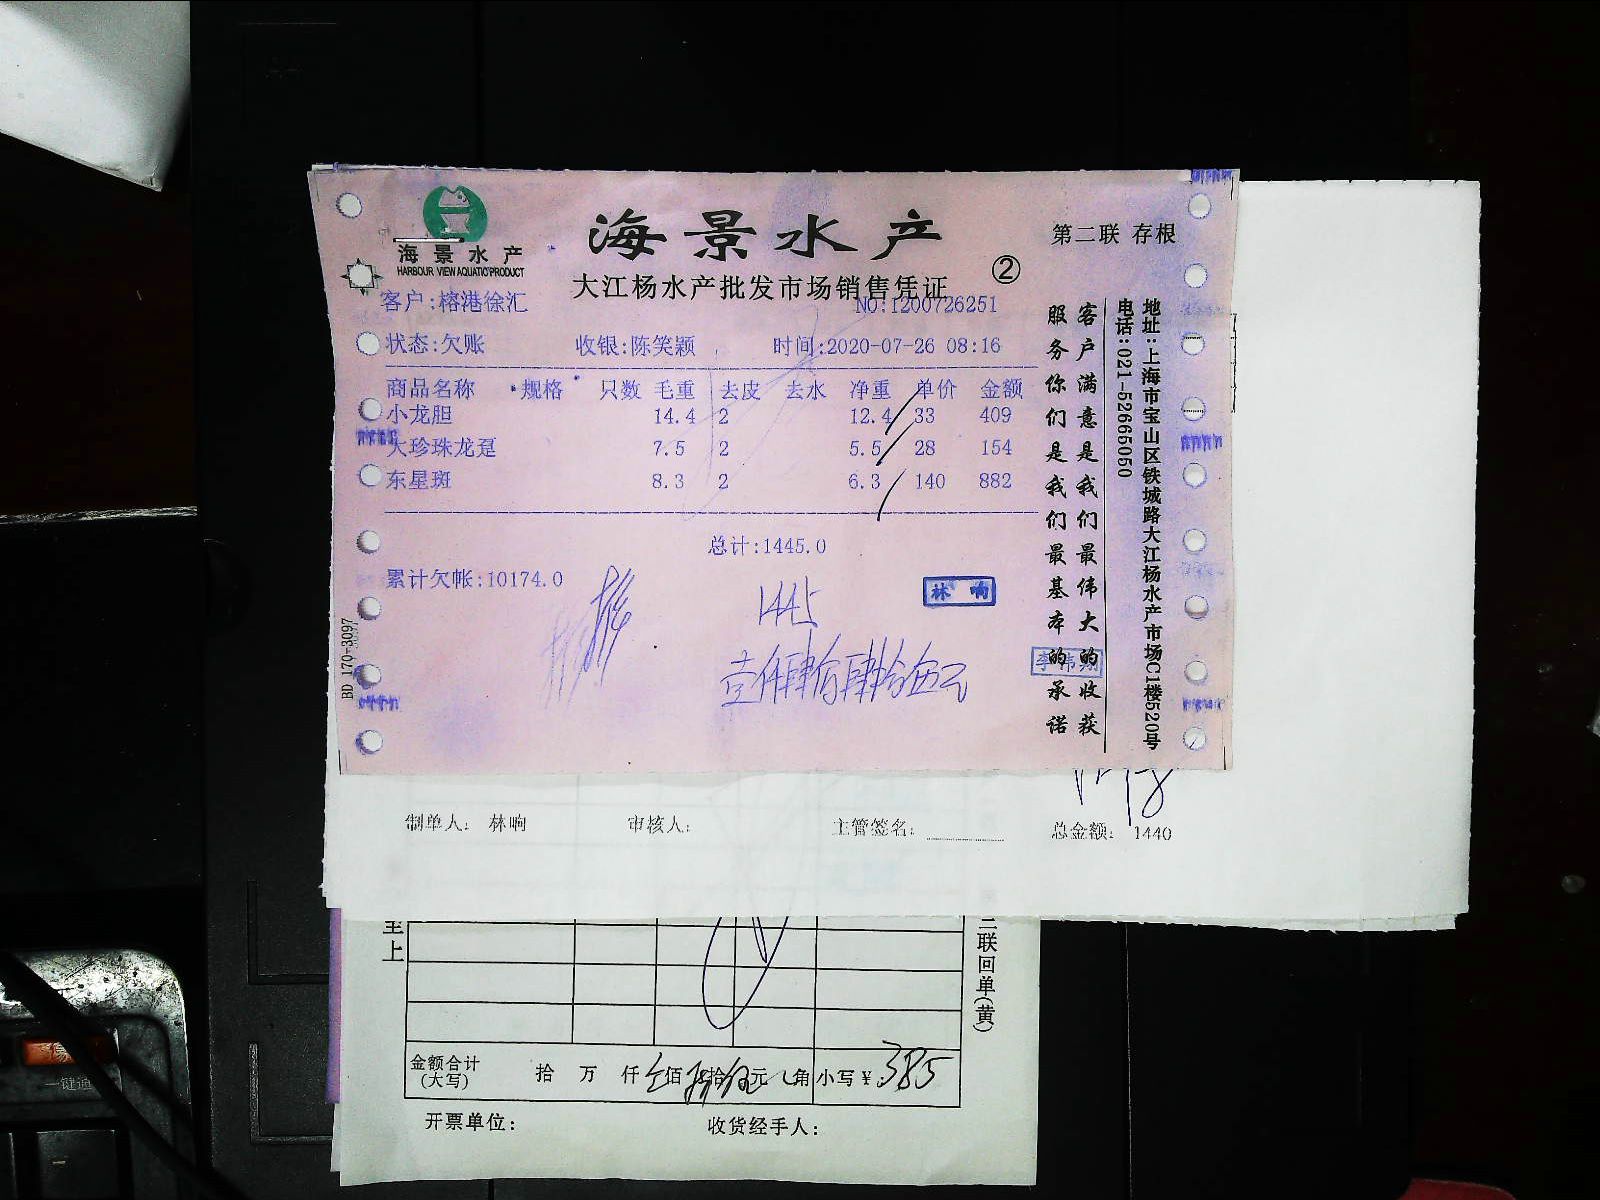 海景水产
HARBOUR VIEW AQUATIC PRODUCT
海景水产
第二联 存根
②
大江杨水产批发市场销售凭证
客户:榕港徐汇
NO:1200726251
状态:欠账 收银:陈笑颖 时间:2020-07-26 08:16
商品名称 规格 只数 毛重 去皮 去水 净重 单价 金额
小龙胆 14.4 2 12.4 33 409
大珍珠龙趸 7.5 2 5.5 28 154
东星斑 8.3 2 6.3 140 882
总计:1445.0
累计欠帐:10174.0
1445
林响
壹仟肆佰肆拾伍元
客户满意是我们最伟大的收获
服务你们是我们最基本的承诺
地址:上海市宝山区铁城路大江杨水产市场C1楼520号
电话:021-52665050
BD 170-3097
制单人: 林响 审核人: 主管签名: 总金额: 1440
至上
二联回单(黄)
金额合计
(大写)
拾 万 仟 佰 拾 元 角 小写¥ 385
开票单位: 收货经手人:
一键通